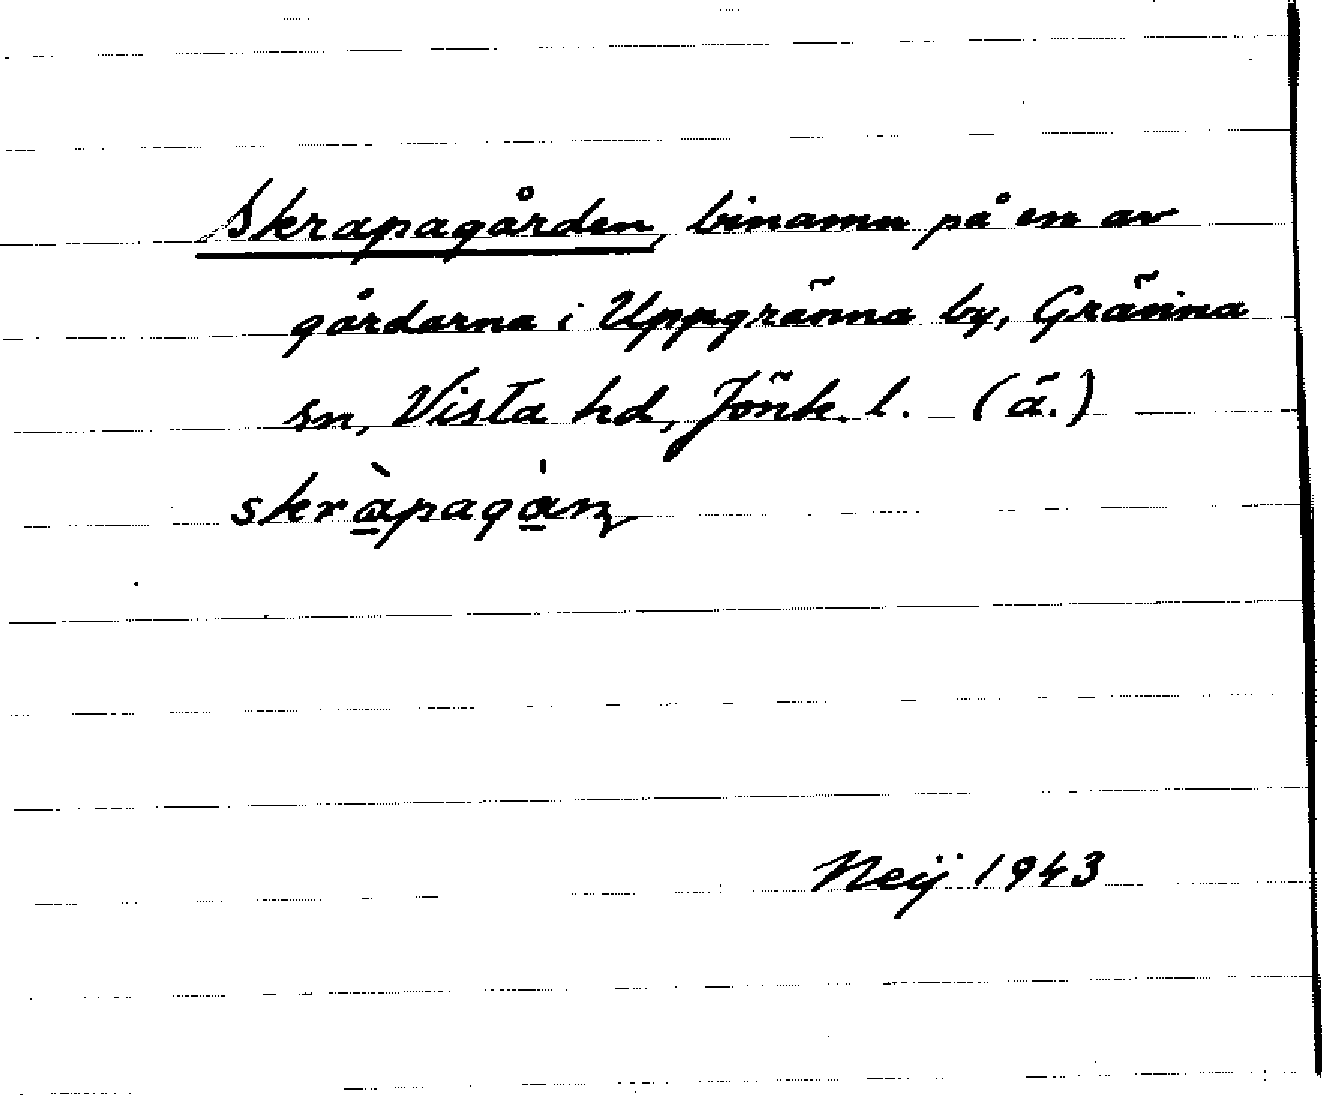 Skrapagården, binamn på en av
gårdarna i Uppgränna by, Gränna
sn, Vista hd, Jönk. l. (ä.)
Neij 1943